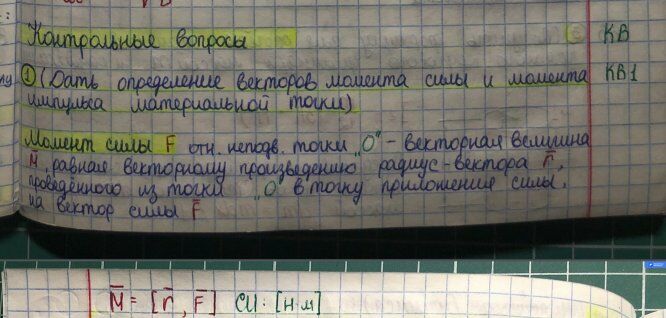 Контрольные вопросы КВ
① (Дать определение векторов момента силы и момента КВ1
импульса материальной точки)
Момент силы F̄ отн. неподв. точки „О" - векторная величина
M̄, равная векторному произведению радиус-вектора r̄,
проведённого из точки „О" в точку приложения силы,
на вектор силы F̄
M̄ = [r̄, F̄] СИ: [Н·м]